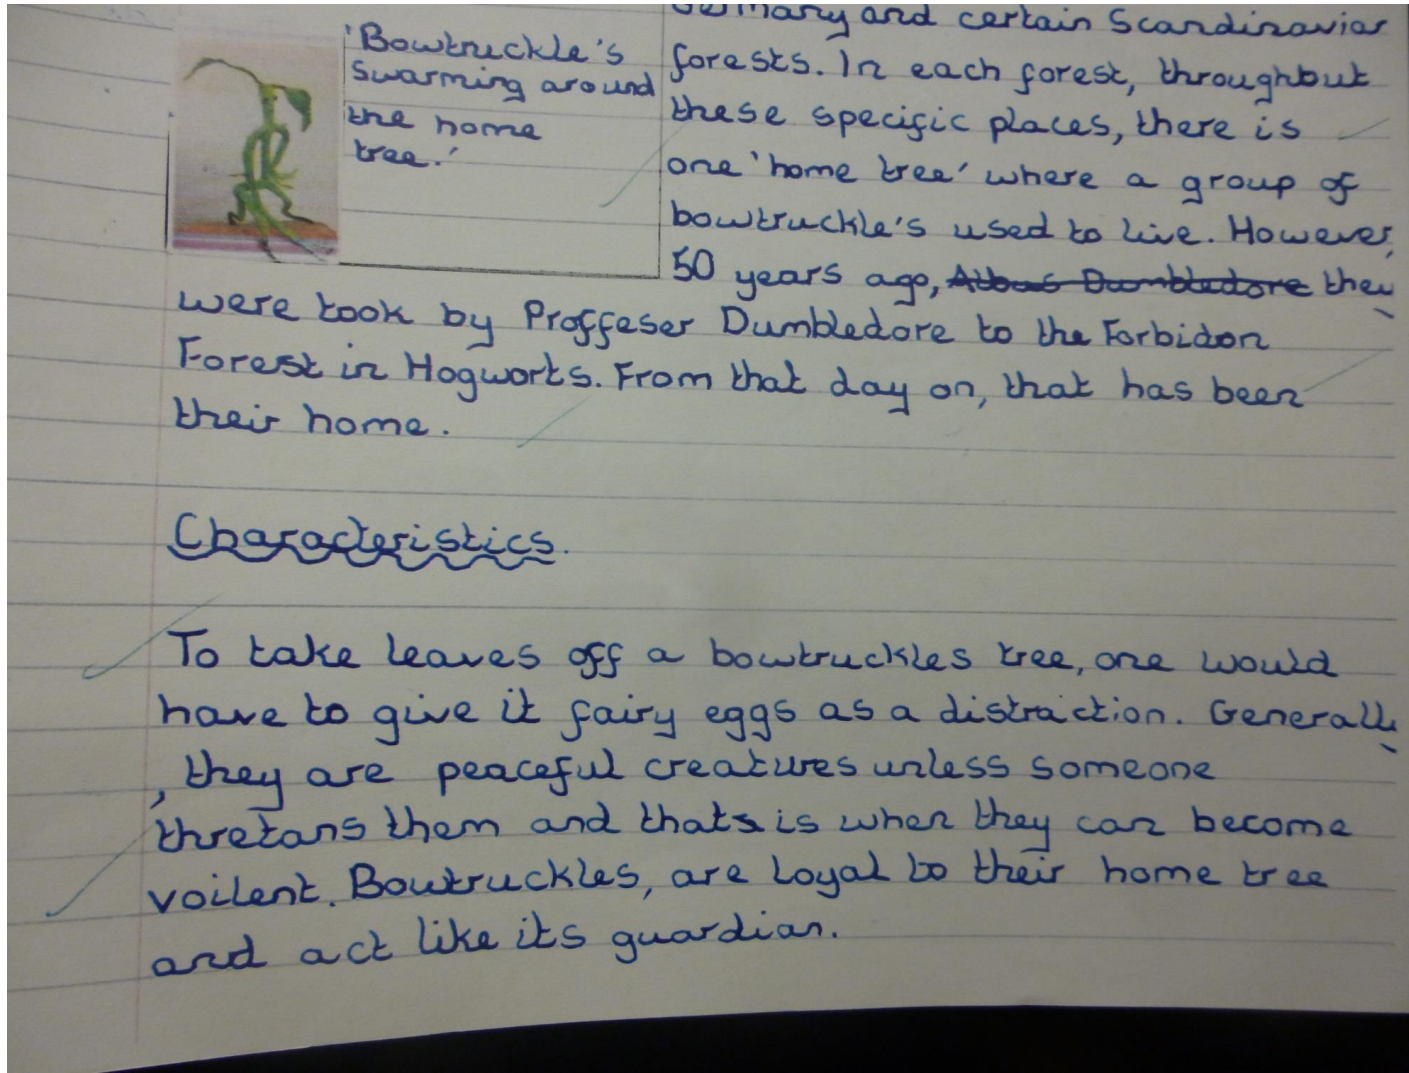 'Bowtruckle's
swarming around
the home
tree.'
Germany and certain Scandinavian
forests. In each forest, throughout
these specific places, there is
one 'home tree' where a group of
bowtruckle's used to live. However,
50 years ago, Albus Dumbledore they
were took by Proffeser Dumbledore to the Forbidon
Forest in Hogworts. From that day on, that has been
their home.
Characteristics.
To take leaves off a bowtruckles tree, one would
have to give it fairy eggs as a distraction. Generally
, they are peaceful creatures unless someone
thretans them and thats is when they can become
voilent. Bowtruckles, are loyal to their home tree
and act like its guardian.